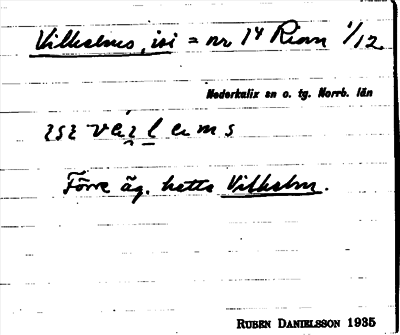 Vilhelms, isi = nr 14 Risön 1/12
Nederkalix sn o. tg. Norrb. län
Förre äg. hette Vilhelm.
RUBEN DANIELSSON 1935